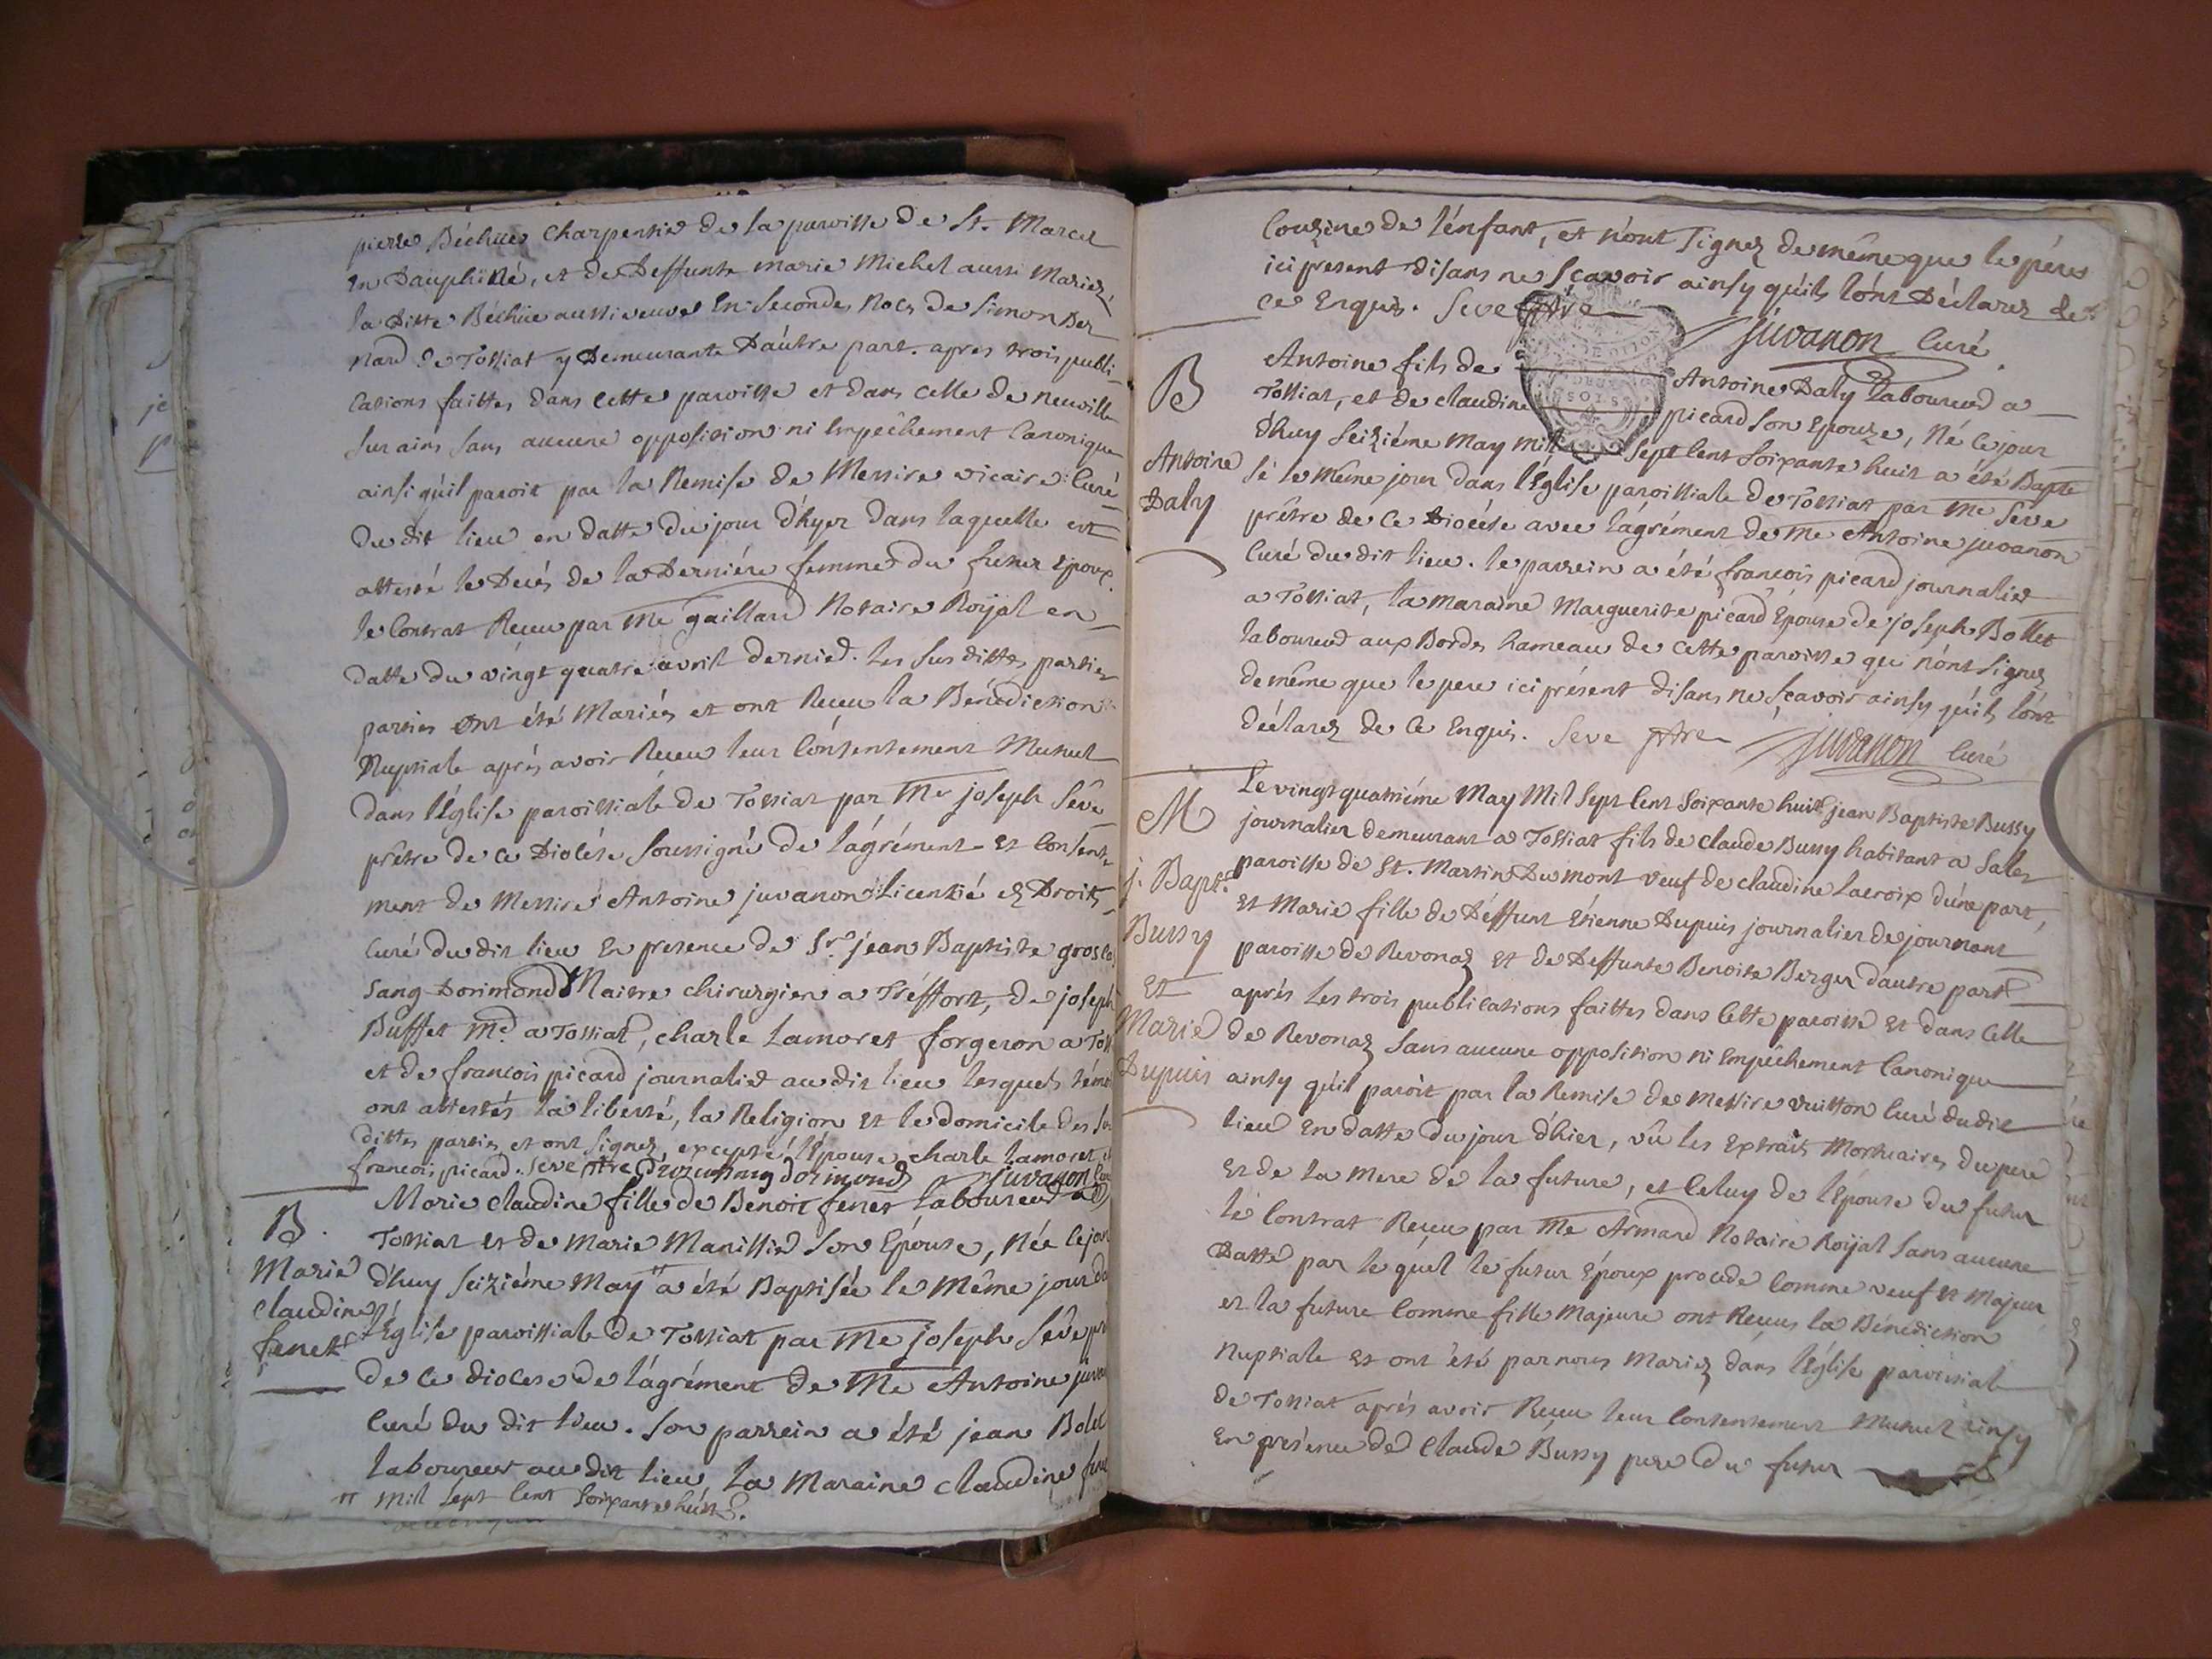 pierre Béchüe Charpentier de la paroisse de St. Marcel
en Dauphiné, et de deffunte marie Michel aussi Mariez
la ditte Béchüe aussi veuve En Secondes Noces de Simon Ber
nard de Tossiat y Demeurante Daútre part. apres trois publi
cations faittes dans cette paroisse et dans celle de neuville
sur ains sans aucune opposition ni Empêchement Canonique
ainsi qu'il paroit par la Remise de Messire vicaire Curé
du dit lieu en datte du jour d'hyer dans laquelle est
attesté le Decés de la Derniére femme du futur Epoux.
le Contrat Reçeu par Me gaillard Notaire Royal en
datte du vingt quatre avril dernier. les sus dittes parties
parties ont été Mariés et ont Reçeu la Bénédiction
Nuptiale aprés avoir Receu leur Consentement Mutuel
dans l'Église paroissiale de Tossiat par Me joseph Sêve
prêtre de ce Diocése soussigné de l'agrément et Consente
ment de Messire Antoine juvanon Licentié ez Droits
Curé du dit lieu En presence de Sr. jean Baptiste gros
sang Dorimond Maitre chirurgien a Tréffort, de joseph
Buffet Md. a Tossiat, charle Lamoret forgeron a Toss
et de francois picard journalier au dit lieu lesquels témo
ont attestés la liberté, la Religion et le domicile des sus
dittes parties et ont signez, excepté l'Epouse, charle Lamoret et
francois picard. Seve ptre Dorimond juvanon Curé
B.
Marie
Claudine
fenet
Marie claudine fille de Benoit fenet Laboureur a
Tossiat et de Marie Manissier son Épouse, Née le jour
d'huy seiziéme May a été Baptisée le Même jour da
l'Église paroissiale de Tossiat par Me joseph Sêve pr
de ce diocese de l'agrément de Me Antoine juva
Curé du dit lieu. Son parrein a été jean Bolet
laboureur au dit lieu La Maraine claudine fenet
Mil sept Cent soixante huit.
Couzine de l'énfant, et n'ont signez de même que le pére
ici present disans ne sçavoir ainsy qu'ils l'ont Déclarez de
ce Enquis. Seve ptre juvanon Curé
B
Antoine
Daly
Antoine fils de Antoine Daly Laboureur a
Tossiat, et de claudine picard son Epouze, Né ce jour
d'huy seiziéme May mil sept Cent soixante huit a été Bapti
sé le même jour dans l'Eglise paroissiale de Tossiat par Me Seve
prêtre de ce Diocése avec l'agrément de Me Antoine juvanon
Curé du dit lieu. le parrein a été francois picard journalier
a Tossiat, la maraine Marguerite picard Epouse de joseph Bollet
laboureur aux Bordes hameau de cette paroisse qui n'ont signez
de même que le pere ici présent disans ne sçavoir ainsy qu'ils l'ont
déclarez de ce Enquis. Seve ptre juvanon Curé
M
j. Bapte
Bussy
Et
Marie
Dupuis
Le vingt quatriéme May Mil Sept Cent Soixante huit jean Baptiste Bussy
journalier demeurant a Tossiat fils de claude Bussy habitant a Sales
paroisse de St. Martin du mont veuf de claudine Lacroix d'une part,
et Marie fille de Déffunt Étienne Dupuis journalier de journant
paroisse de Revonaz et de Deffunte Benoite Berger d'autre part
aprés les trois publications faittes dans cette paroisse et dans celle
de Revonaz sans aucune opposition ni Empêchement Canonique
ainsy qu'il paroit par la Remise de Messire vuitton Curé du dit
lieu En datte du jour d'hier, vû les Extraits Mortuaires du pere
et de la Mere de la future, et Celuy de l'Epouse du futur
lé Contrat Reçeu par Me Armand Notaire Royal sans aucune
Datte par le quel le futur Époux procede Comme veuf et Majeur
et la future Comme fille Majeure ont Reçeus la Bénédiction
Nuptiale et ont été par nous Mariez dans l'Église paroissiale
de Tossiat aprés avoir Receu leur Consentement Mutuel ainsy
en présence de Claude Bussy pere du futur